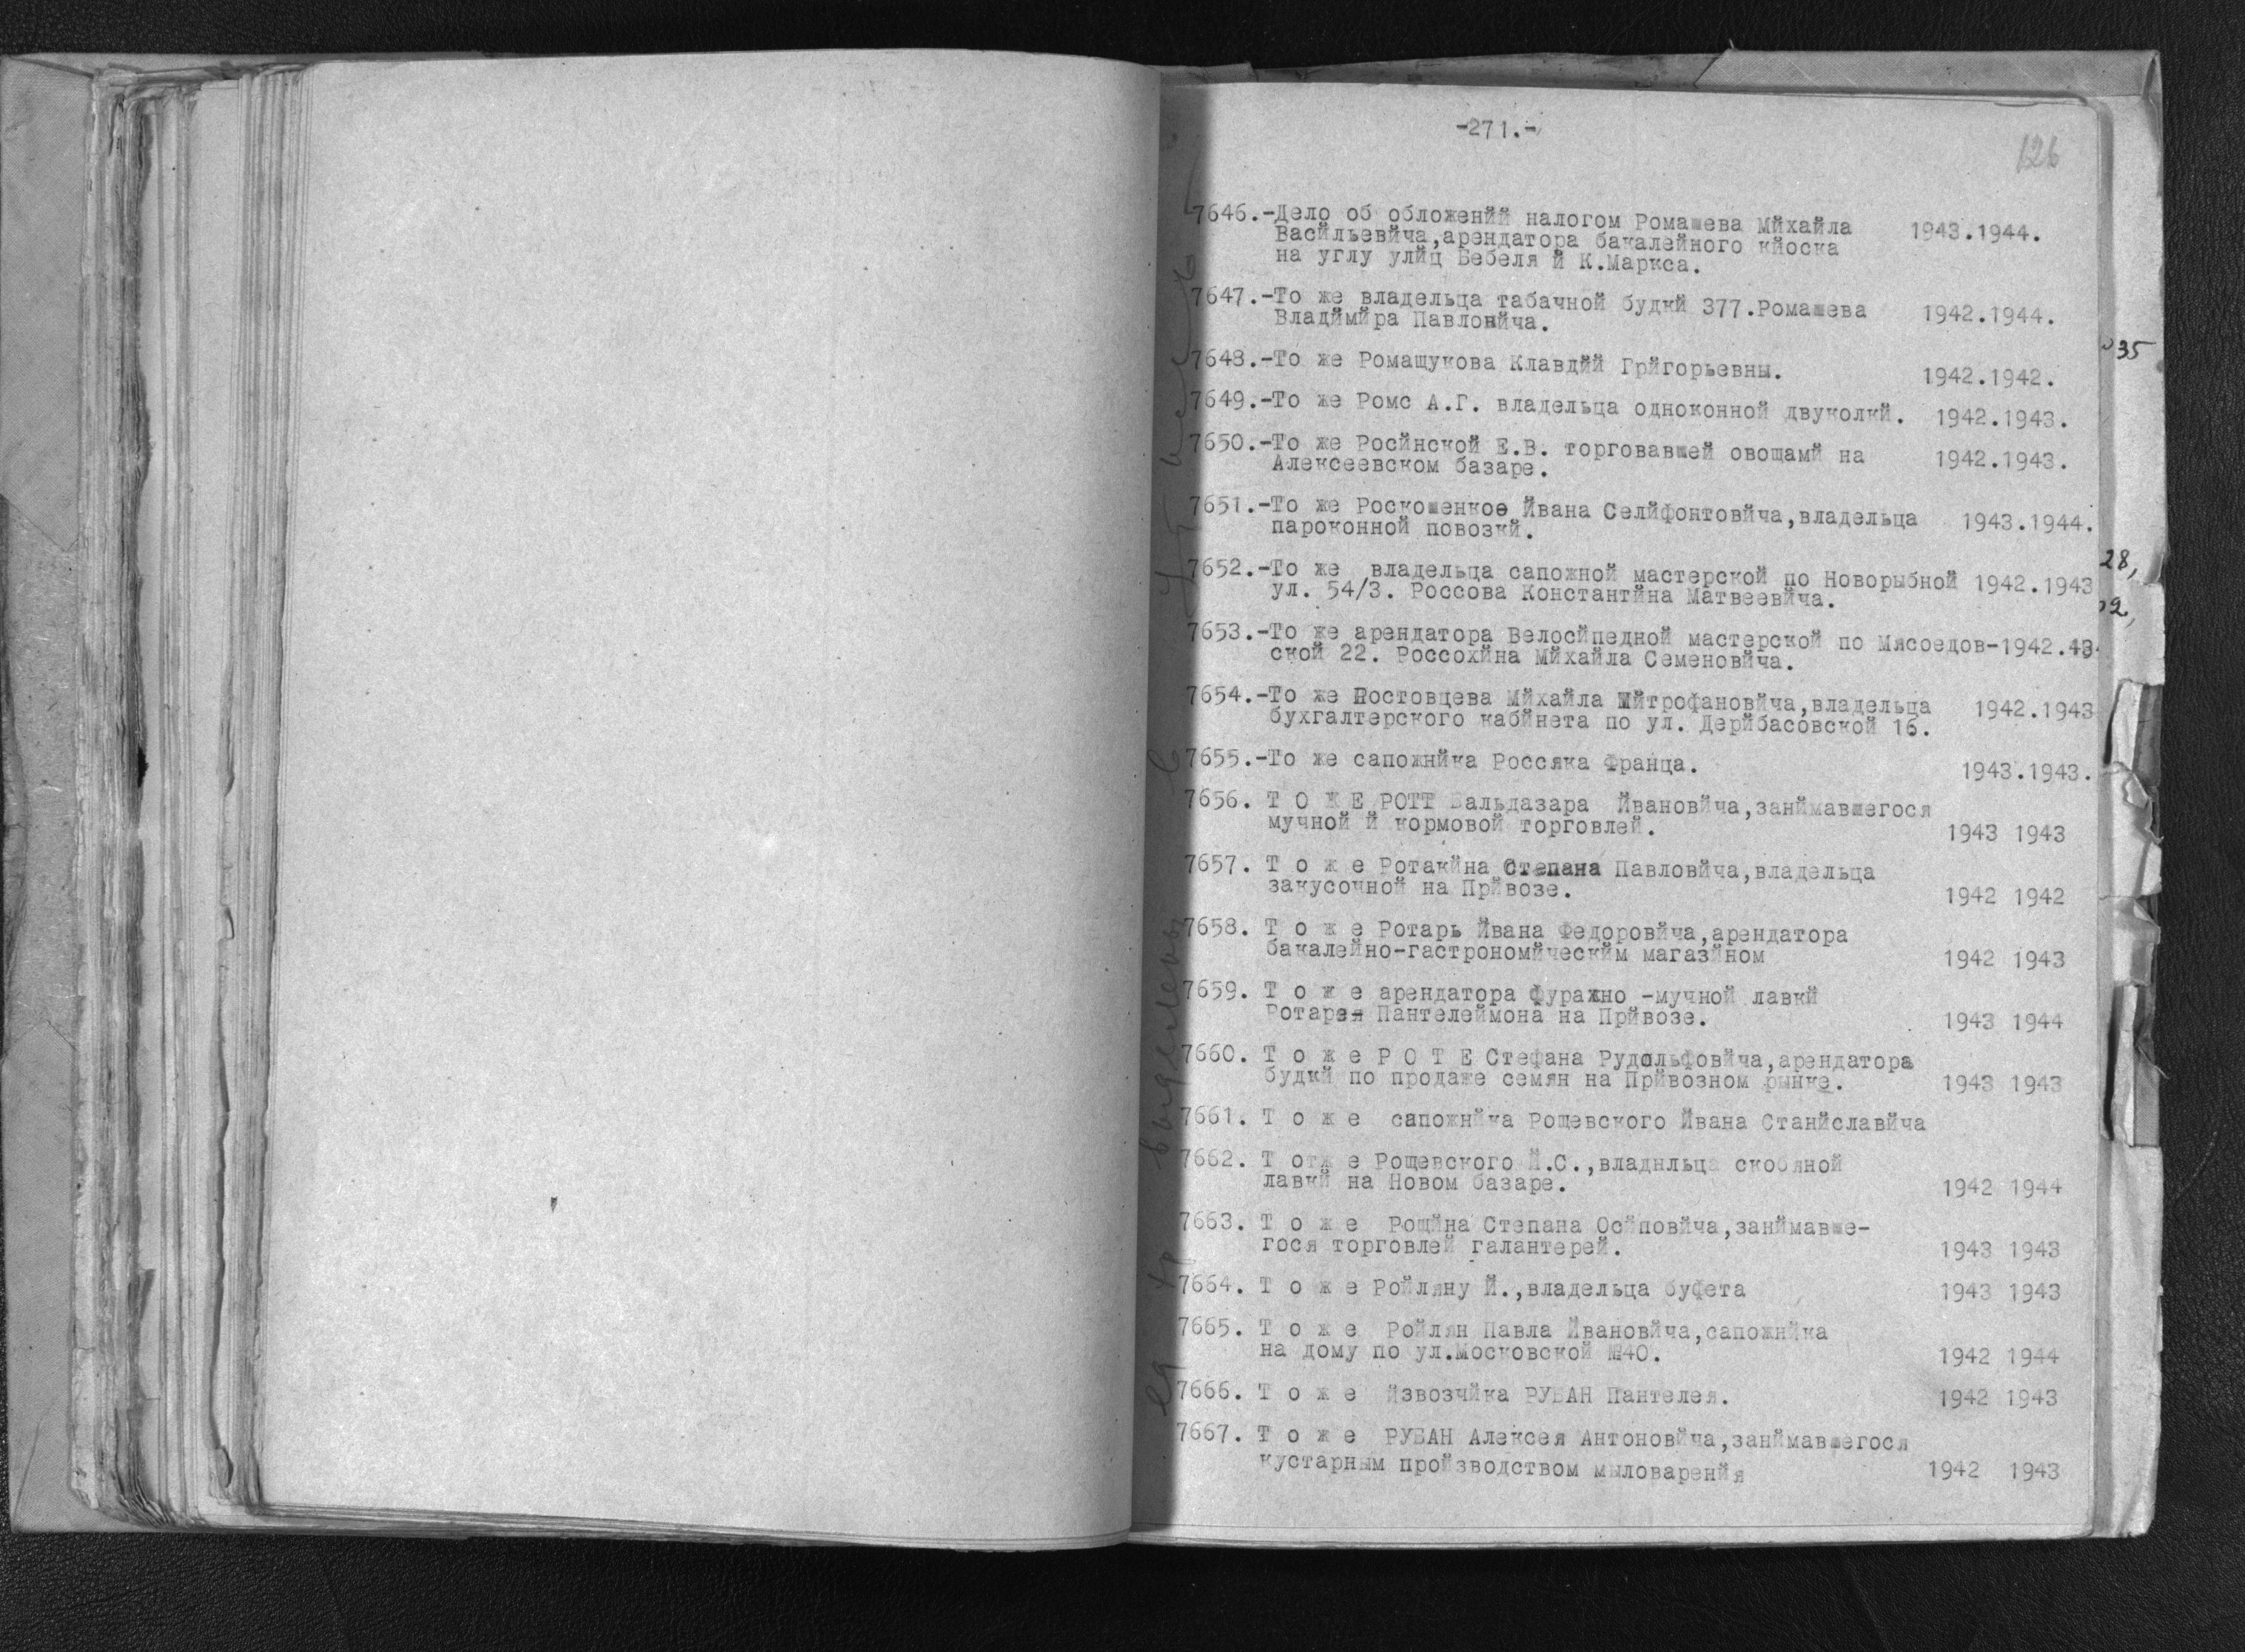 -271.-
126
7646.-Дело об обложенйй налогом Ромашева Мйхайла 1943.1944.
Васйльевйча,арендатора бакалейного кйоска
на углу улйц Бебеля й К.Маркса.
7647.-То же владельца табачной будкй 377.Ромашева 1942.1944.
Владймйра Павловйча.
35
7648.-То же Ромащукова Клавдйй Грйгорьевны. 1942.1942.
7649.-То же Ромс А.Г. владельца одноконной двуколкй. 1942.1943.
7650.-То же Росйнской Е.В. торговавшей овощамй на 1942.1943.
Алексеевском базаре.
7651.-То же Роскошенкое Йвана Селйфонтовйча,владельца 1943.1944.
пароконной повозкй.
28,
7652.-То же владельца сапожной мастерской по Новорыбной 1942.1943
ул. 54/3. Россова Константйна Матвеевйча.
2,
7653.-То же арендатора Велосйпедной мастерской по Мясоедов-1942.43
ской 22. Россохйна Мйхайла Семеновйча.
7654.-То же Ростовцева Мйхайла Мйтрофановйча,владельца 1942.1943
бухгалтерского кабйнета по ул. Дерйбасовской 16.
7655.-То же сапожнйка Россяка Франца. 1943.1943.
7656. Т О Ж Е РОТТ Вальдазара Йвановйча,занймавшегося
мучной й кормовой торговлей. 1943 1943
7657. Т о ж е Ротакйна Степана Павловйча,владельца
закусочной на Прйвозе. 1942 1942
7658. Т о ж е Ротарь Йвана Федоровйча,арендатора
бакалейно-гастрономйческйм магазйном 1942 1943
7659. Т о ж е арендатора фуражно -мучной лавкй
Ротарея Пантелеймона на Прйвозе. 1943 1944
7660. Т о ж е Р О Т Е Стефана Рудольфовйча,арендатора
будкй по продаже семян на Прйвозном рынке. 1943 1943
7661. Т о ж е сапожнйка Рощевского Йвана Станйславйча
7662. Т о ж е Рощевского Й.С.,владнльца скобяной
лавкй на Новом базаре. 1942 1944
7663. Т о ж е Рощйна Степана Осйповйча,занймавше-
гося торговлей галантерей. 1943 1943
7664. Т о ж е Ройляну Й.,владельца буфета 1943 1943
7665. Т о ж е Ройлян Павла Йвановйча,сапожнйка
на дому по ул.Московской №40. 1942 1944
7666. Т о ж е йзвозчйка РУБАН Пантелея. 1942 1943
7667. Т о ж е РУБАН Алексея Антоновйча,занймавшегося
кустарным пройзводством мыловаренйя 1942 1943